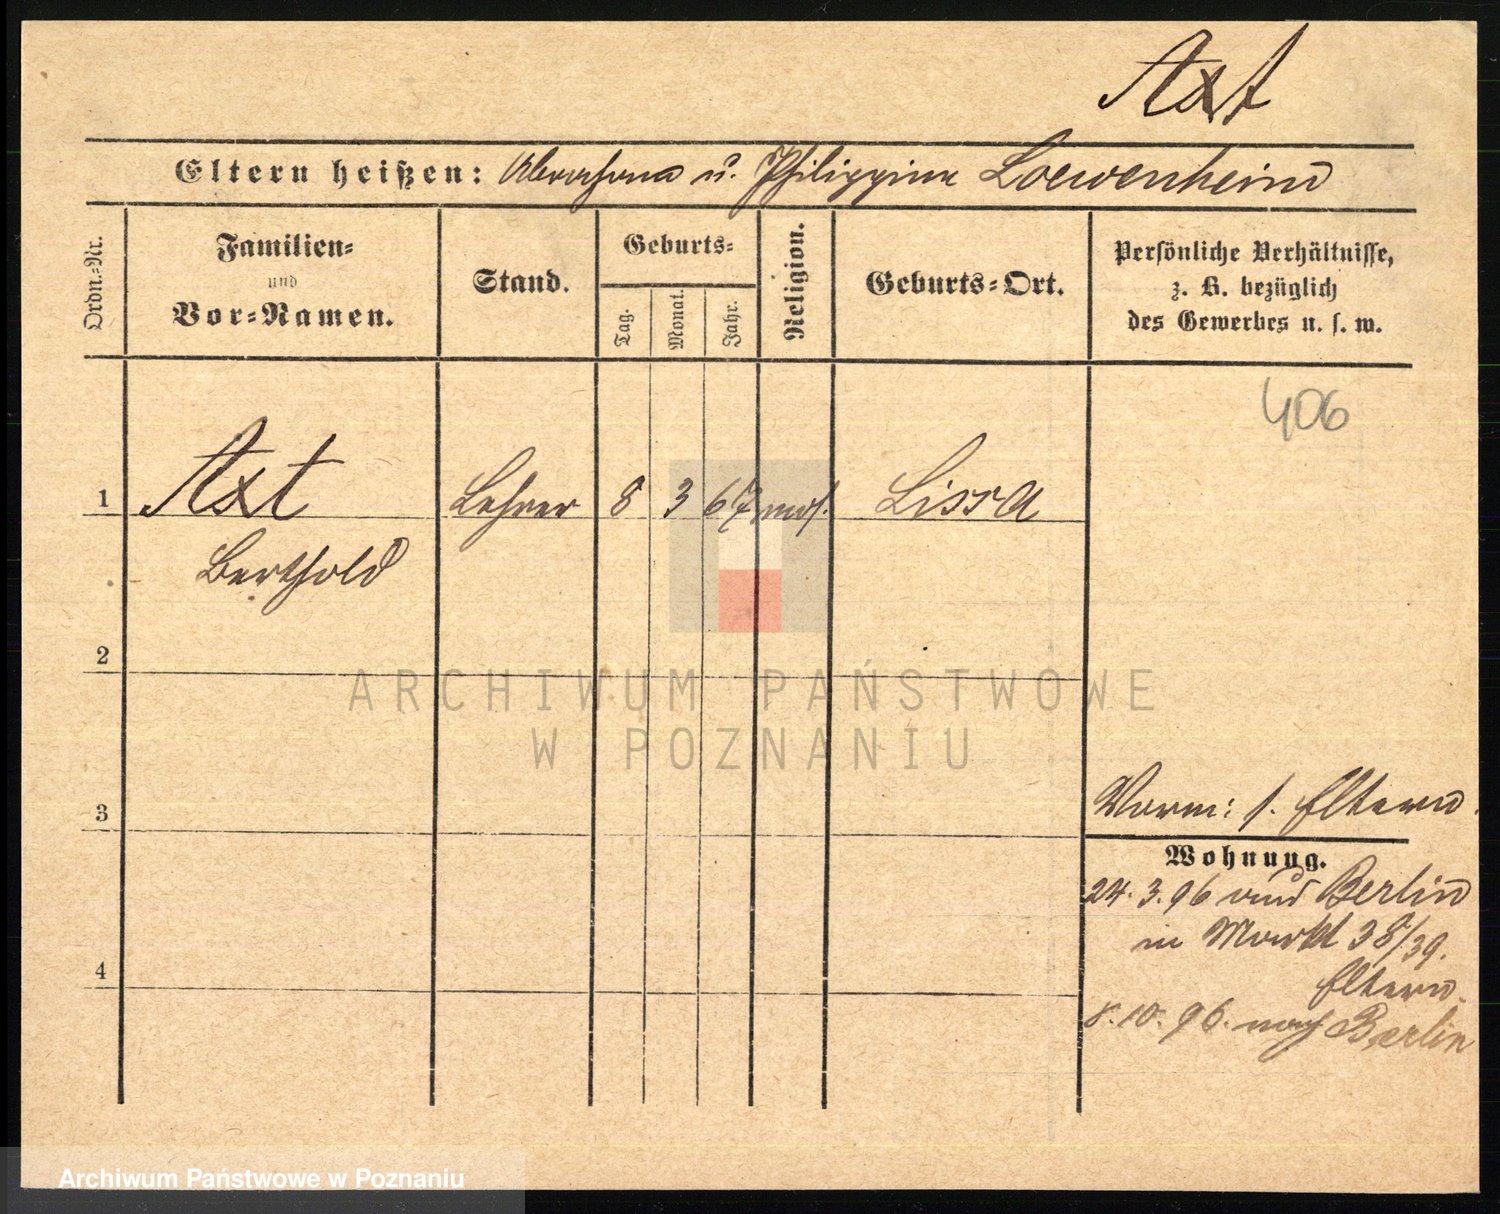 Axt
Eltern heißen: Abraham u. Philippine Loewenheim
Ordn.-Nr.
Familien-
und
Vor-Namen.
Stand.
Geburts-
Tag.
Monat.
Jahr.
Religion.
Geburts-Ort.
Persönliche Verhältnisse,
z. B. bezüglich
des Gewerbes u. s. w.
406
1 Axt Lehrer 8 3 67 mos. Lissa
Berthold
2
3
4
Vorm: s. Eltern.
Wohnung.
24. 3. 96 aus Berlin
in Markt 38/39.
Eltern.
8. 10. 96. nach Berlin
ARCHIWUM PAŃSTWOWE
W POZNANIU
Archiwum Państwowe w Poznaniu